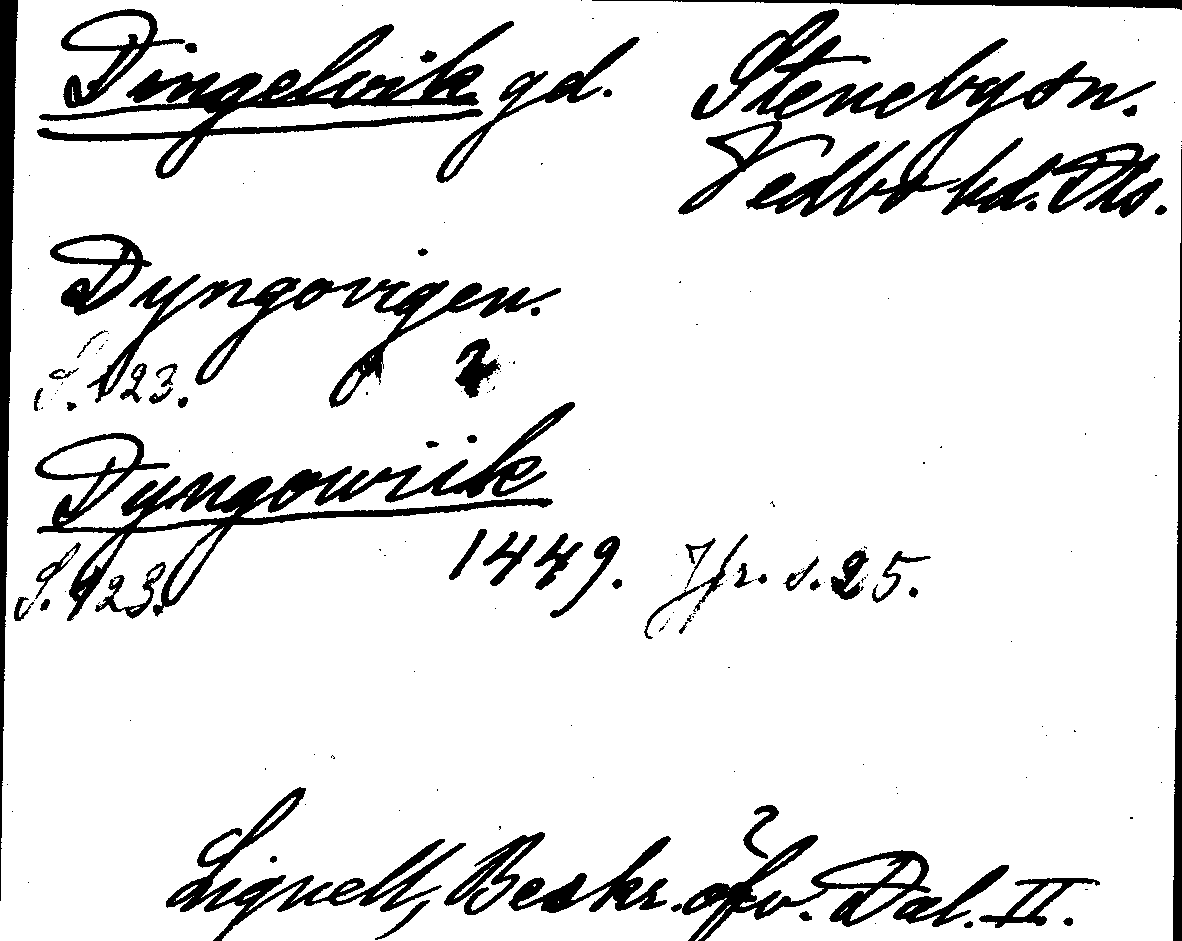 Dingelvik gd. Stenebysn.
Vedbo hd. Dls.
Dyngovigen.
S. 123. 2
Dyngowiik
S. 123. 1449. Jfr. s. 25.
Lignell, Beskr. öfv. Dal. II.